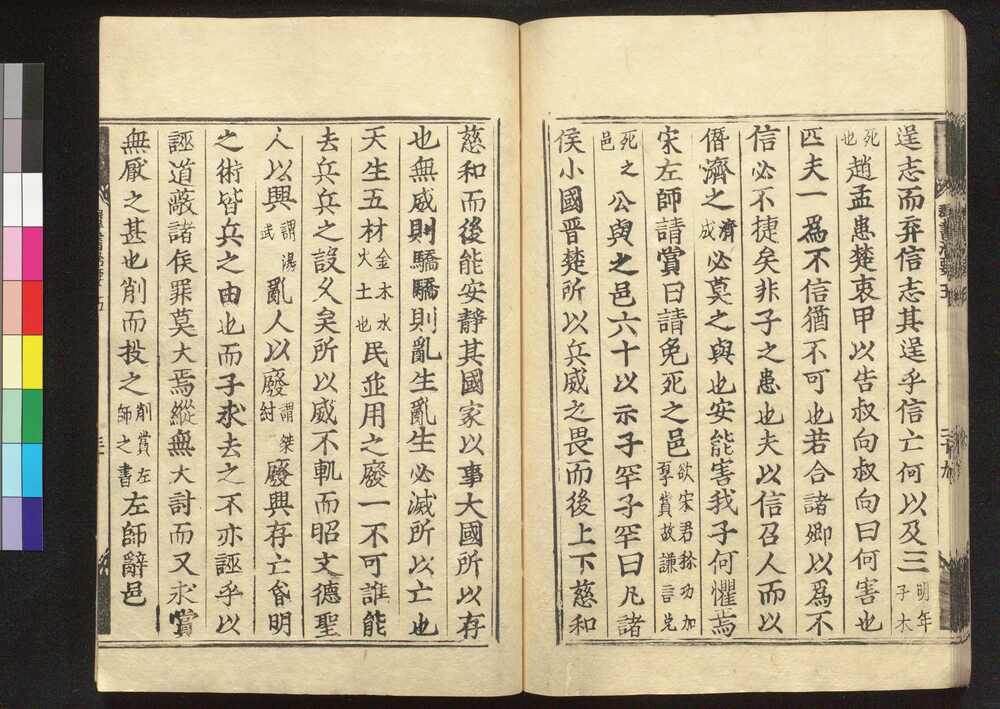 逞志而弃信志其逞乎信亡何以及三明年子木
死也趙孟患楚衷甲以告叔向叔向曰何害也
匹夫一爲不信猶不可也若合諸卿以爲不
信必不捷矣非子之患也夫以信召人而以
僭濟之濟成必莫之與也安能害我子何懼焉
宋左師請賞曰請免死之邑欲宋君稱功加厚賞故謙言免
死之邑公與之邑六十以示子罕子罕曰凡諸
侯小國晋楚所以兵威之畏而後上下慈和
慈和而後能安靜其國家以事大國所以存
也無威則驕驕則亂生亂生必滅所以亡也
天生五材金木水火土也民並用之廢一不可誰能
去兵兵之設久矣所以威不軌而昭文德聖
人以興謂湯武亂人以廢謂桀紂廢興存亡昏明
之術皆兵之由也而子求去之不亦誣乎以
誣道蔽諸侯罪莫大焉縱無大討而又求賞
無厭之甚也削而投之削賞左師之書左師辭邑